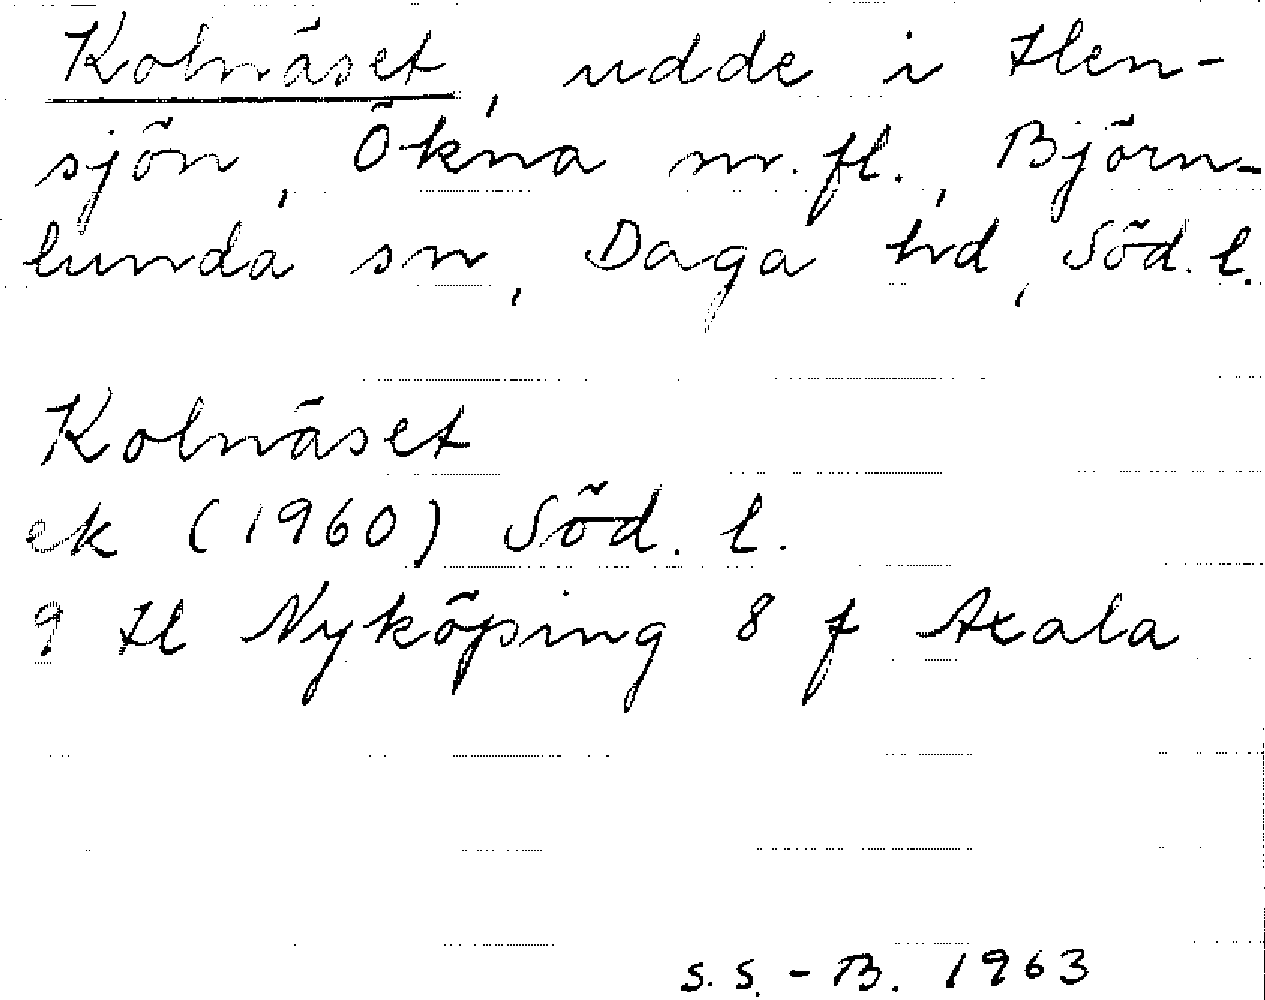 Kolnäset, udde i Hen-
sjön, Ökna m.fl., Björn-
lunda sn, Daga hd, Söd. l.
Kolnäset
ek (1960) Söd. l.
9 H Nyköping 8 f Axala
S.S.-B. 1963